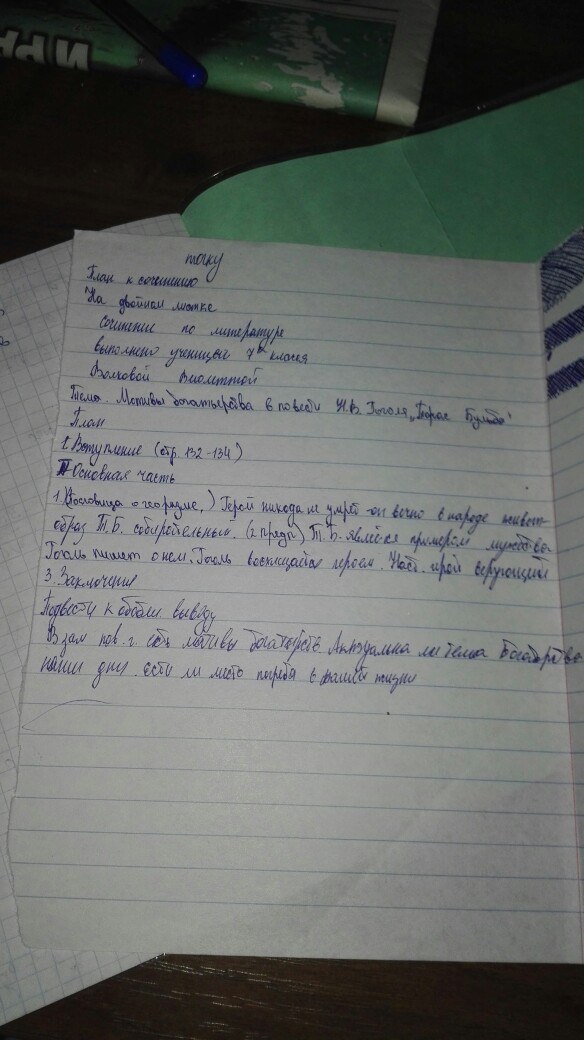 И РА
точку
План к сочинению
На двойном листке
сочинение по литературе
выполнено ученицы 7 класса
Волховой Виолеттой
Тема. Мотивы богатырства в повести Н.В. Гоголя „Тарас Бульба"
План
I. Вступление (стр. 132-134)
II Основная часть
1. (Пословица о героизме.) Герой никогда не умрёт - он вечно в народе живёт.
образ Т.Б. собирательный. (2 предл) Т.Б. является примером мужества
Гоголь пишет о нем. Гоголь восхищается героем. Наст. герой верующий
3. Заключения
Подвести к общему выводу
В дан пов. г. есть мотивы богатырств Актуальна ли тема богатырства
наши дни. есть ли место в нашей жизни